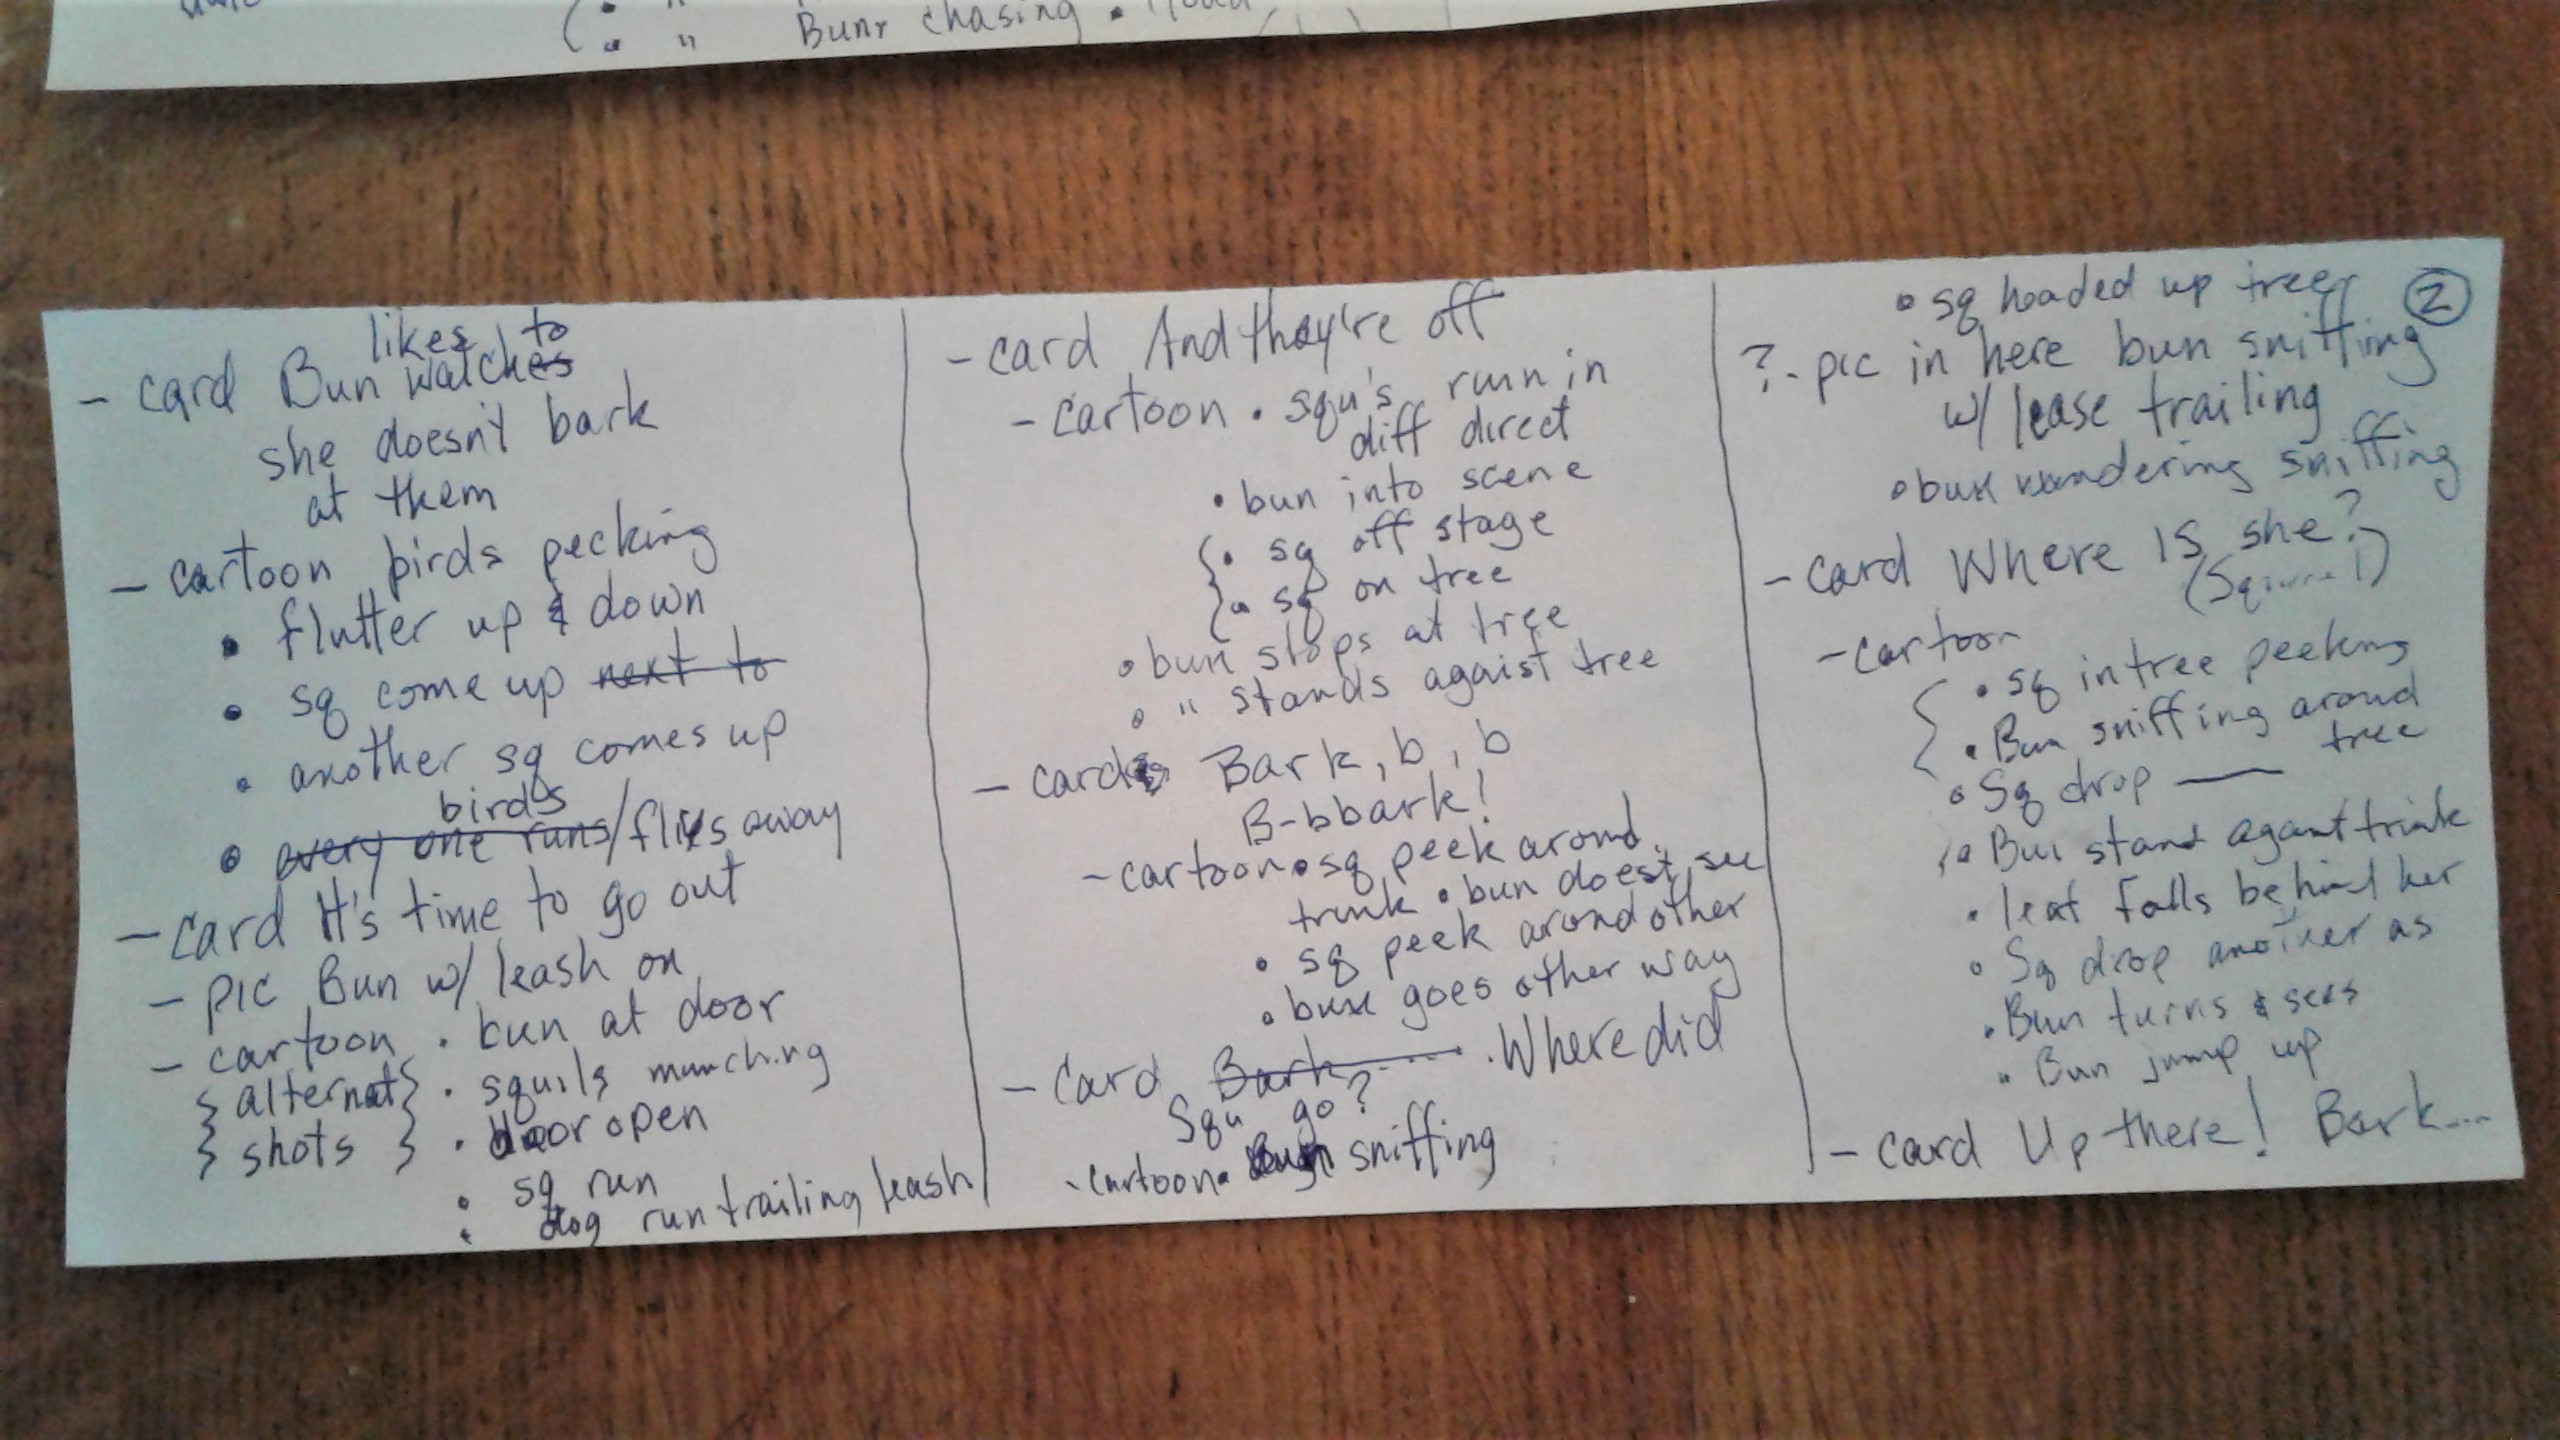 " Bunr chasing .
likes to
- card Bun watches
she doesn't bark
at them
- cartoon birds pecking
• flutter up & down
• sq come up next to
• another sq comes up
birds
• every one runs/flies away
- card It's time to go out
- pic Bun w/ leash on
- cartoon • bun at door
{alternat} • squils munching
{shots} • door open
• sq run
• dog run trailing leash
- card And they're off
- cartoon • squ's run in
diff direct
• bun into scene
{• sq off stage
{• sq on tree
• bun stops at tree
• " stands agaist tree
- cards Bark, b, b
B-bbark!
- cartoon • sq peek around
trunk • bun doest see
• sq peek around other
• bun goes other way
- Card Bark ---- . Where did
Squ go?
- cartoon • Bun sniffing
• sq headed up tree
②
? - pic in here bun sniffing
w/ lease trailing
• bun wandering sniffing
- card Where is she?
(Squirrel)
- cartoon
{• sq in tree peeking
{• Bun sniffing around
tree
• Sq drop ——
• Bun stand against trunk
• leaf falls behind her
• Sq drop another as
• Bun turns & sees
• Bun jump up
- card Up there! Bark...